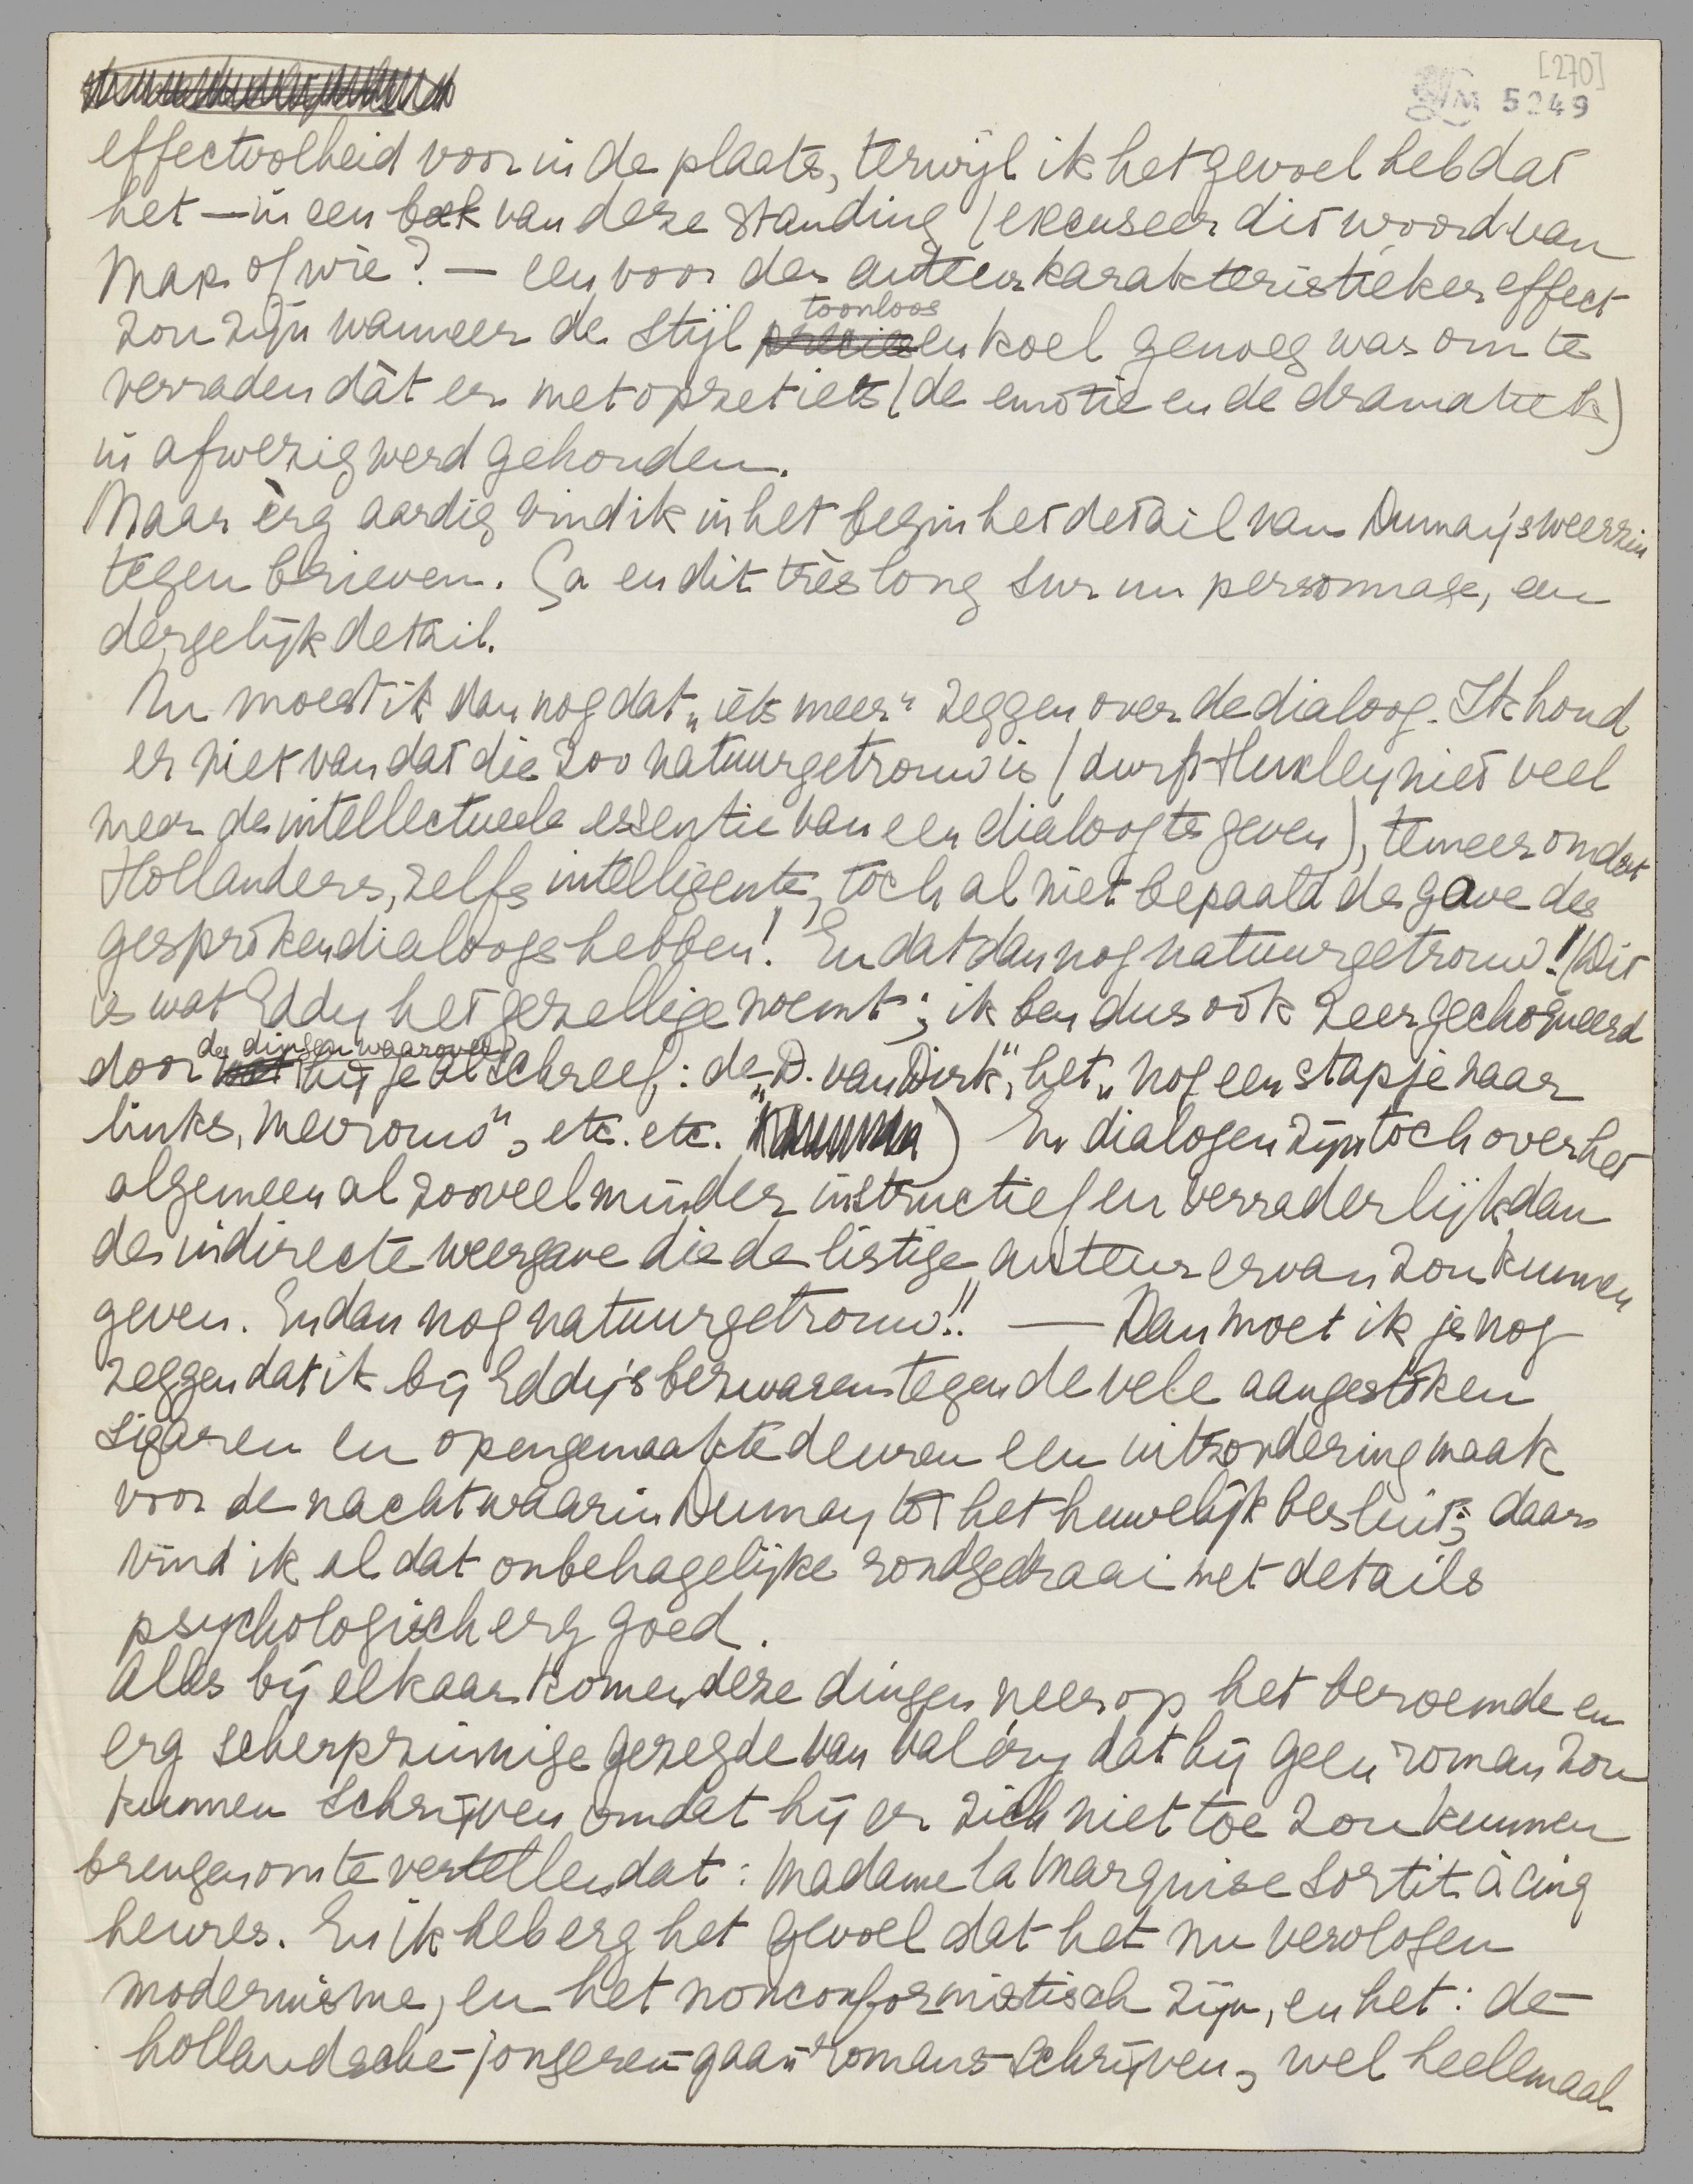 [270]
LM 5249
effectvolheid voor in de plaats, terwijl ik het gevoel heb dat
het — in een boek van deze standing (excuseer dit woord van
Max of wie? — een voor den auteur karakteristieker effect
zou zijn wanneer de stijl toonloos en koel genoeg was om te
verraden dàt er met opzet iets (de emotie en de dramatiek)
in afwezig werd gehouden.
Maar èrg aardig vind ik in het begin het detail van Dumay's weerzin
tegen brieven. Ça en dit très long sur un personnage, een
dergelijk detail.
Nu moest ik dan nog dat „iets meer" zeggen over de dialoog. Ik houd
er niet van dat die zoo natuurgetrouw is (durft Huxley niet veel
meer de intellectueele essentie van een dialoog te geven), temeer omdat
Hollanders, zelfs intelligente, toch al niet bepaald de gave des
gesproken dialoogs hebben! En dat dan nog natuurgetrouw! (Dit
is wat Eddy het gezellige noemt; ik ben dus ook zeer gechoqueerd
door de dingen waarover hij je al schreef: de „D. van Dirk", het „nog een stapje naar
links, mevrouw", etc. etc. ) En dialogen zijn toch over het
algemeen al zooveel minder instructief en verraderlijk dan
de indirecte weergave die de listige auteur ervan zou kunnen
geven. En dan nog natuurgetrouw!! — Dan moet ik je nog
zeggen dat ik bij Eddy's bezwaren tegen de vele aangestoken
sigaren en opengemaakte deuren een uitzondering maak
voor de nacht waarin Dumay tot het huwelijk besluit; daar
vind ik al dat onbehagelijke rondgedraai met details
psychologisch erg goed.
Alles bij elkaar komen deze dingen neer op het beroemde en
erg scherpzinnige gezegde van Valéry dat hij geen roman zou
kunnen schrijven omdat hij er zich niet toe zou kunnen
brengen om te vertellen dat: Madame la Marquise sortit à cinq
heures. En ik heb erg het gevoel dat het nu vervlogen
modernisme, en het nonconformistisch zijn, en het: de-
hollandsche-jongeren-gaan-romans-schrijven, wel heelemaal